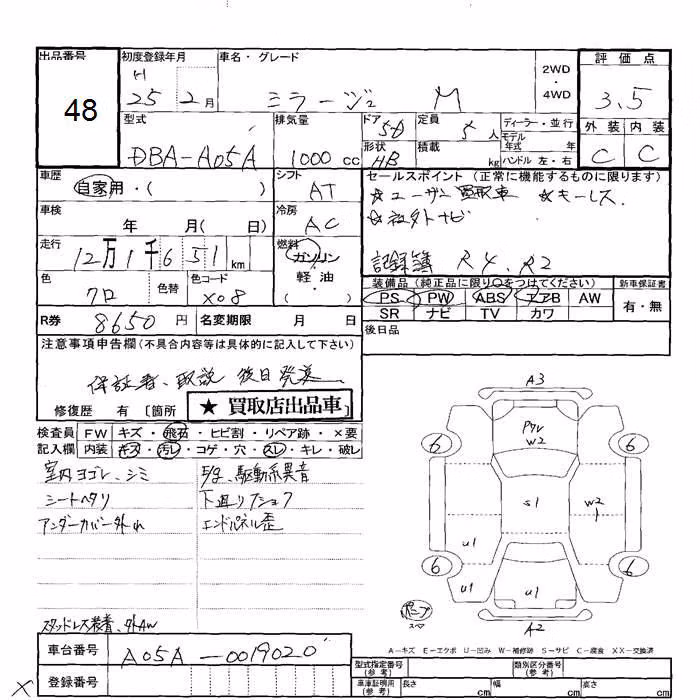 出品番号
48
初度登録年月
H
25 2月
車名・グレード
ミラージュ M
2WD
・
4WD
評価点
3.5
外装 内装
C C
型式
DBA-A05A
排気量
1000 cc
ドア
5D
形状
HB
定員
5人
積載
kg
ディーラー・並行
モデル
年式 年
ハンドル 左・右
車歴
自家用・( )
シフト
AT
セールスポイント (正常に機能するものに限ります)
☆ユーザー買取車 ☆キーレス
☆社外ナビ
記録簿 R4、R2
車検
年 月( 日)
冷房
AC
走行
12万1千651km
燃料
ガソリン
・
軽油
・
( )
色
クロ
色替
色コード
X08
装備品 (純正品に限り○をつけてください)
PS PW ABS エアB AW
SR ナビ TV カワ
新車保証書
有・無
R券 8650円
名変期限 月 日
後日品
注意事項申告欄 (不具合内容等は具体的に記入して下さい)
保証書、取説 後日発送
修復歴 有 〔箇所
★ 買取店出品車
検査員 FW キズ・飛石・ヒビ割・リペア跡・×要
記入欄 内装 キズ・汚レ・コゲ・穴・スレ・キレ・破レ
室内ヨゴレ、シミ
シートヘタリ
アンダーカバー外れ
駆動系異音
下廻りフショク
エンドパネル歪
スタッドレス装着、外AW
A3
W2
6 6
S1
W2
1
U1
6 6
U1
U1
A2
A−キズ E−エクボ U−凹み W−補修跡 S−サビ C−腐食 XX−交換済
車台番号 A05A-0019020
登録番号
型式指定番号
(参考)
類別区分番号
(参考)
車庫証明用
(参考)
長さ cm 幅 cm 高さ cm
X